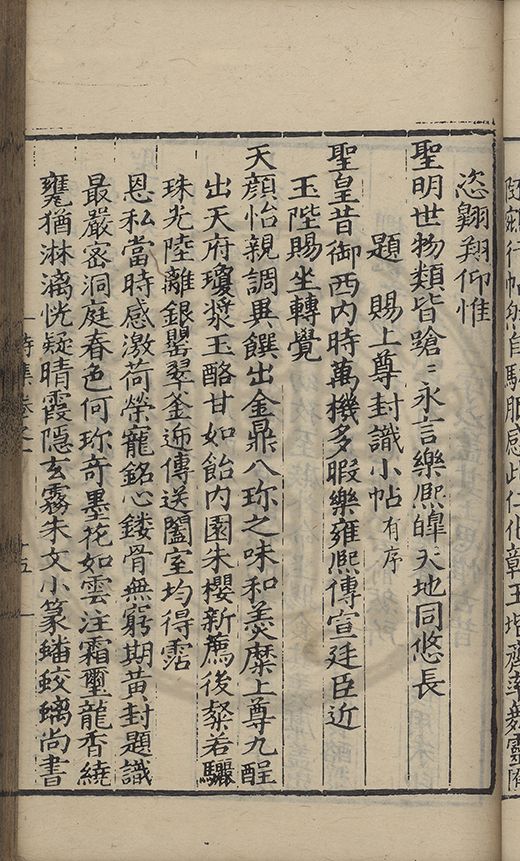 恣翺翔仰惟
聖明世物類皆蹌〻永言樂熈皥天地同悠長
題　賜上尊封識小帖 有序
聖皇昔御西内時萬機多暇樂雍熈傳宣廷臣近
玉陛賜坐轉覺
天顔怡親調異饌出金鼎八珎之味和羙糜上尊九醖
出天府瓊漿玉酪甘如飴内園朱櫻新薦後粲若驪
珠光陸離銀罌翠釜逓傳送闔室均得霑
恩私當時感激荷榮寵銘心鏤骨無窮期黄封題識
最嚴宻洞庭春色何珎竒墨花如雲注霜璽龍香繞
甕猶淋漓恍疑晴霞隱玄霧朱文小篆蟠蛟螭尚書
詩集卷之一　十五